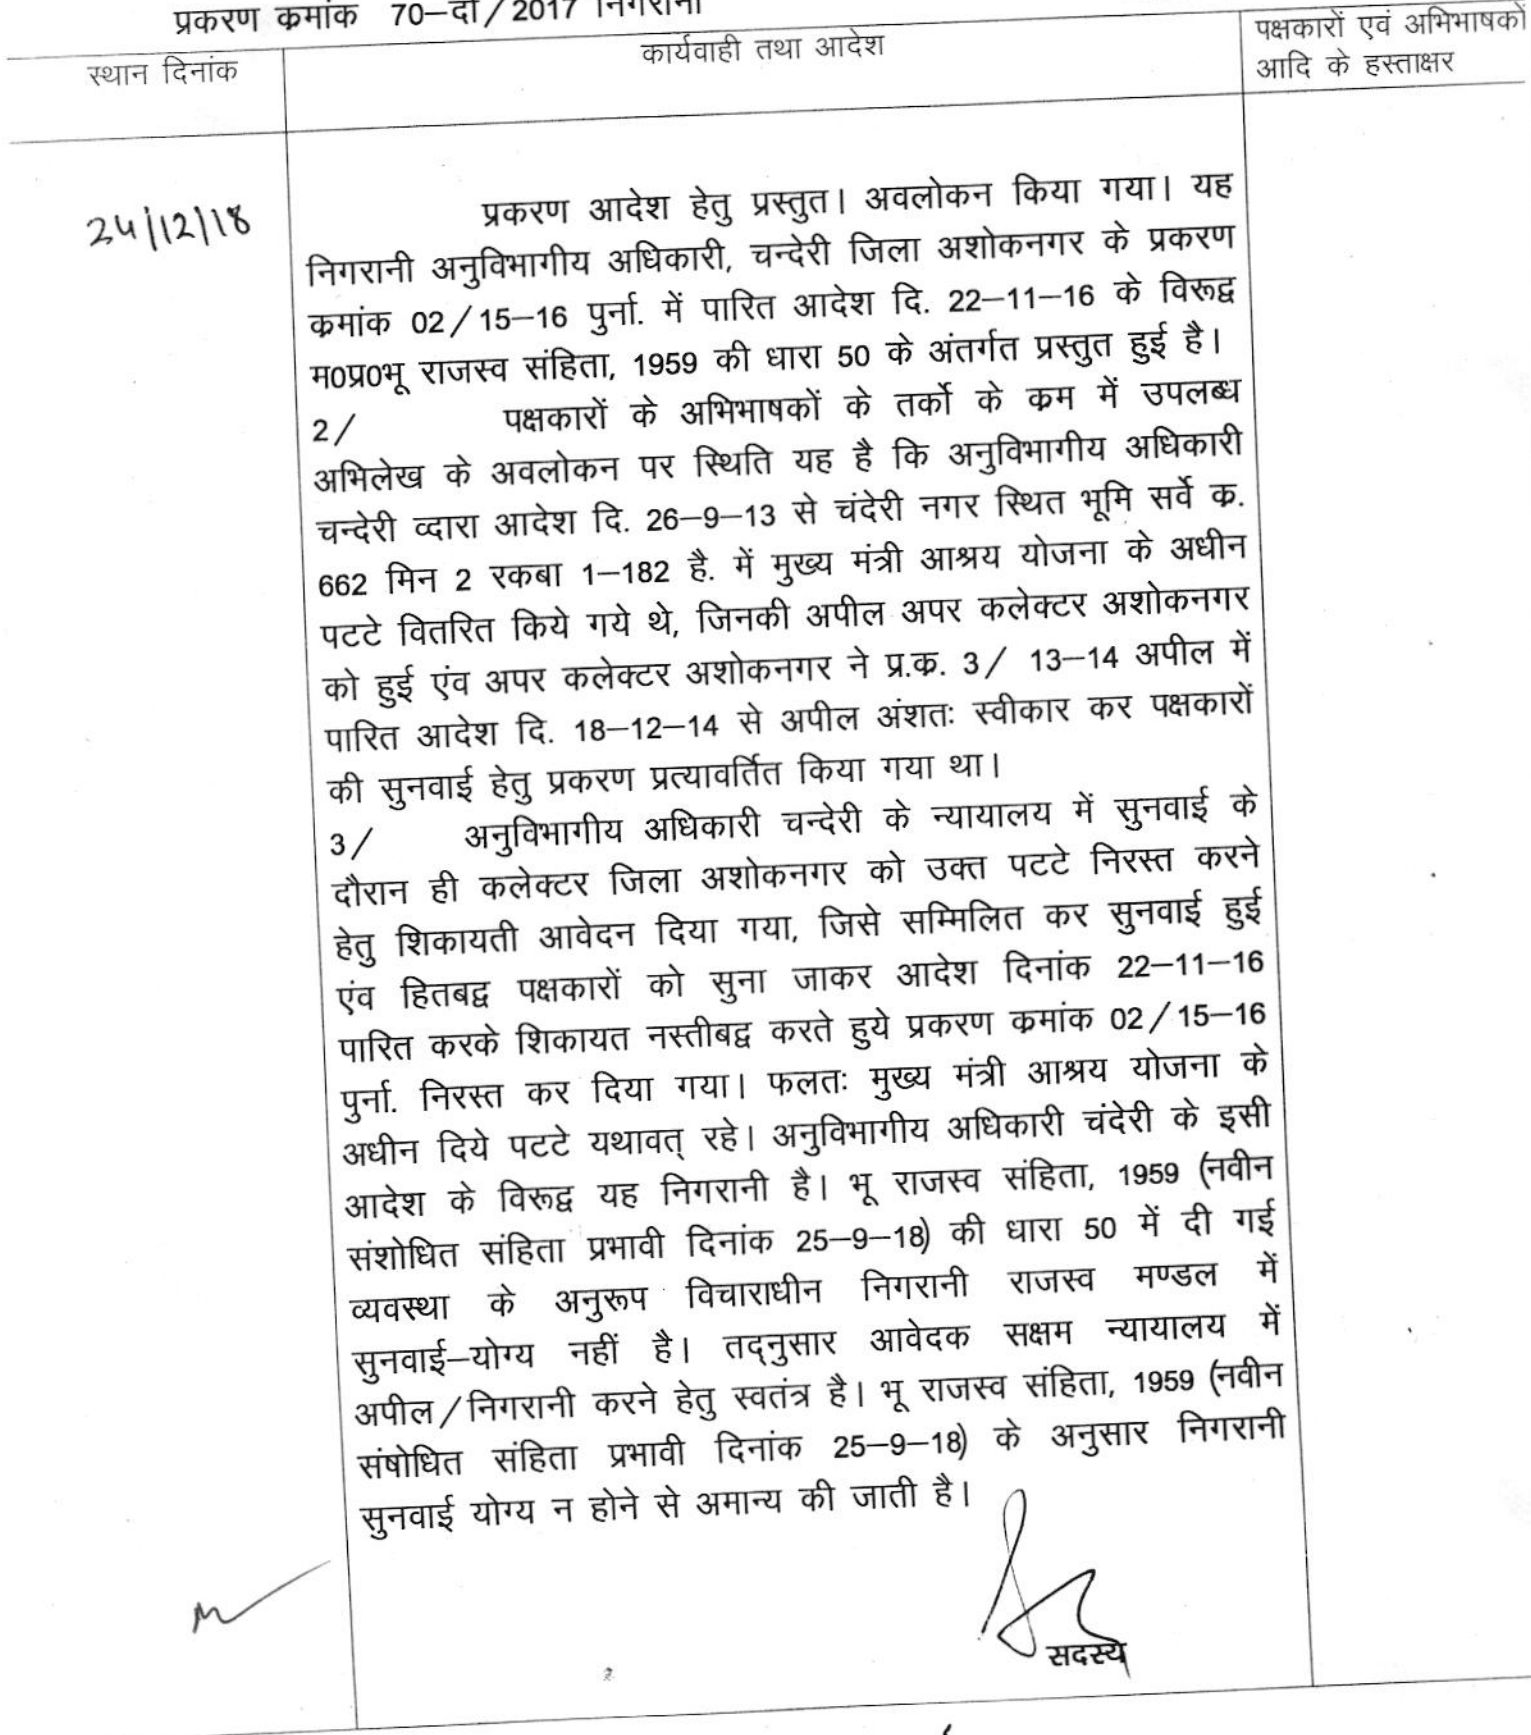 प्रकरण क्रमांक 70–दो/2017 निगरानी
स्थान दिनांक
कार्यवाही तथा आदेश
पक्षकारों एवं अभिभाषकों
आदि के हस्ताक्षर
24/12/18
प्रकरण आदेश हेतु प्रस्तुत। अवलोकन किया गया। यह
निगरानी अनुविभागीय अधिकारी, चन्देरी जिला अशोकनगर के प्रकरण
क्रमांक 02/15–16 पुर्न. में पारित आदेश दि. 22–11–16 के विरूद्व
म0प्र0भू राजस्व संहिता, 1959 की धारा 50 के अंतर्गत प्रस्तुत हुई है।
2/ पक्षकारों के अभिभाषकों के तर्को के क्रम में उपलब्ध
अभिलेख के अवलोकन पर स्थिति यह है कि अनुविभागीय अधिकारी
चन्देरी व्दारा आदेश दि. 26–9–13 से चंदेरी नगर स्थित भूमि सर्वे क्र.
662 मिन 2 रकबा 1–182 है. में मुख्य मंत्री आश्रय योजना के अधीन
पटटे वितरित किये गये थे, जिनकी अपील अपर कलेक्टर अशोकनगर
को हुई एंव अपर कलेक्टर अशोकनगर ने प्र.क्र. 3/ 13–14 अपील में
पारित आदेश दि. 18–12–14 से अपील अंशतः स्वीकार कर पक्षकारों
की सुनवाई हेतु प्रकरण प्रत्यावर्तित किया गया था।
3/ अनुविभागीय अधिकारी चन्देरी के न्यायालय में सुनवाई के
दौरान ही कलेक्टर जिला अशोकनगर को उक्त पटटे निरस्त करने
हेतु शिकायती आवेदन दिया गया, जिसे सम्मिलित कर सुनवाई हुई
एंव हितबद्व पक्षकारों को सुना जाकर आदेश दिनांक 22–11–16
पारित करके शिकायत नस्तीबद्व करते हुये प्रकरण क्रमांक 02/15–16
पुर्न. निरस्त कर दिया गया। फलतः मुख्य मंत्री आश्रय योजना के
अधीन दिये पटटे यथावत् रहे। अनुविभागीय अधिकारी चंदेरी के इसी
आदेश के विरूद्व यह निगरानी है। भू राजस्व संहिता, 1959 (नवीन
संशोधित संहिता प्रभावी दिनांक 25–9–18) की धारा 50 में दी गई
व्यवस्था के अनुरूप विचाराधीन निगरानी राजस्व मण्डल में
सुनवाई–योग्य नहीं है। तद्नुसार आवेदक सक्षम न्यायालय में
अपील/निगरानी करने हेतु स्वतंत्र है। भू राजस्व संहिता, 1959 (नवीन
संषोधित संहिता प्रभावी दिनांक 25–9–18) के अनुसार निगरानी
सुनवाई योग्य न होने से अमान्य की जाती है।
सदस्य